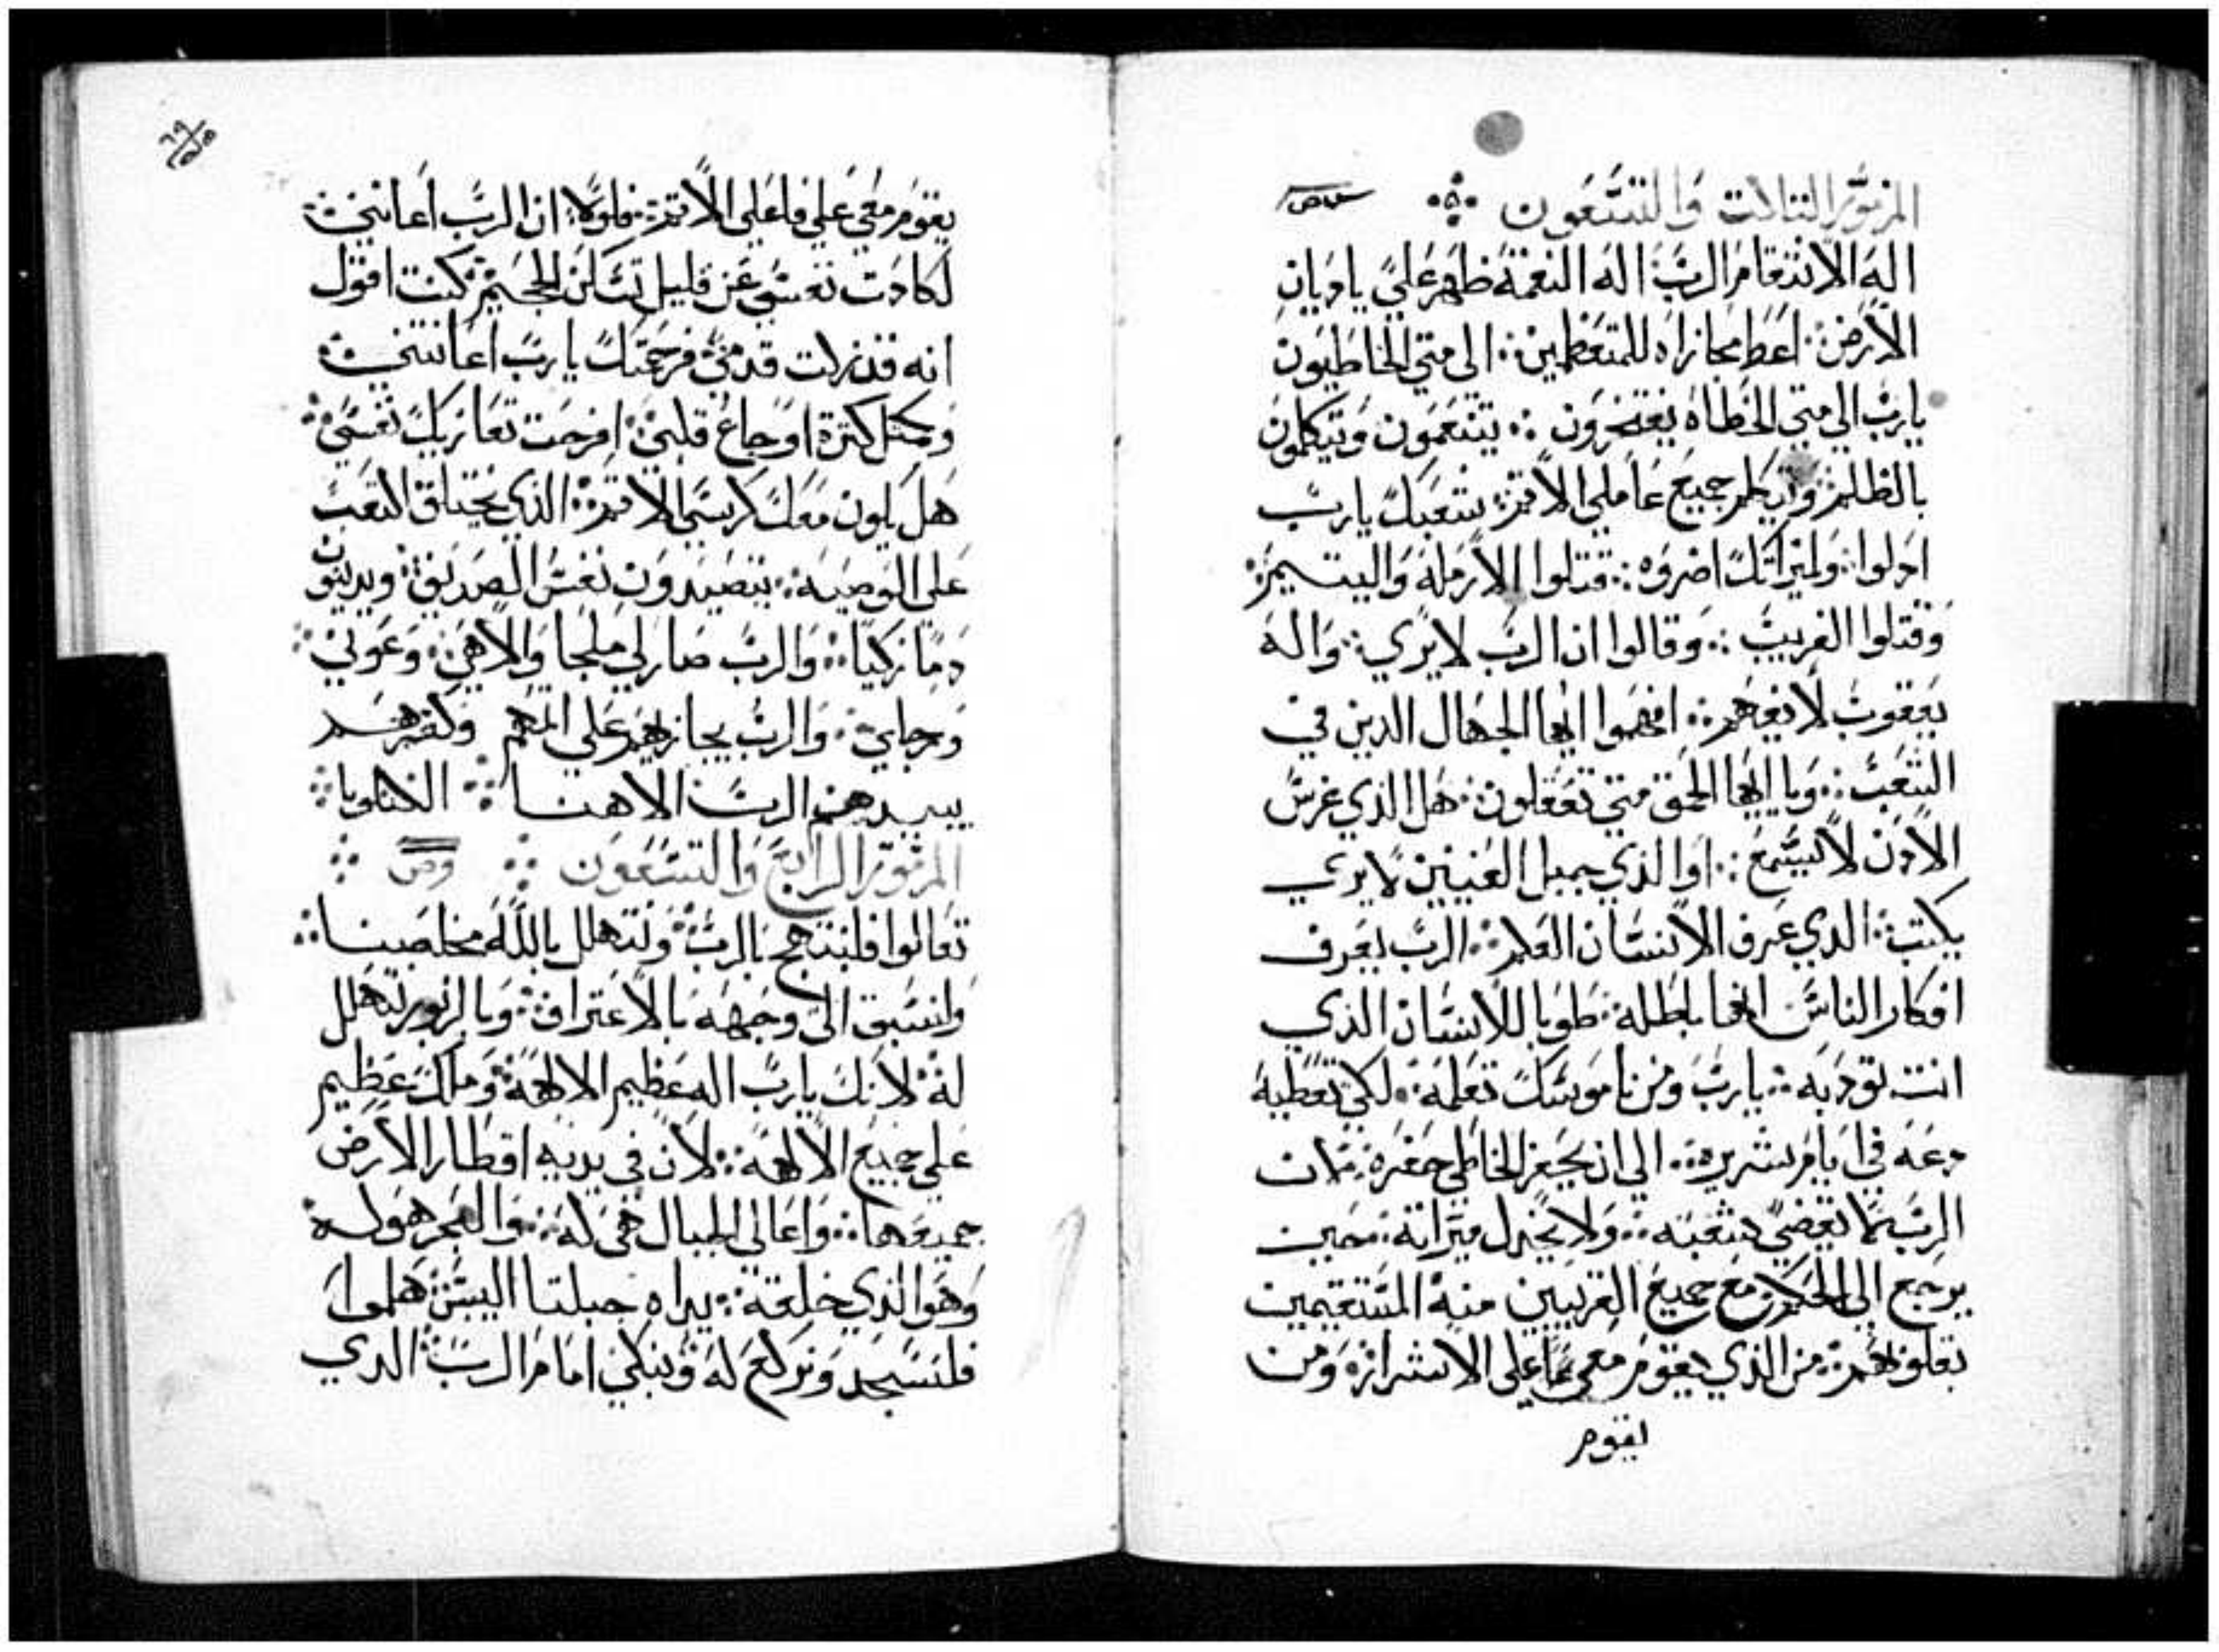 المزمور التالت والتسعون
اله الانتقام الرب اله النقمة ظهر علي يا ديان
الارض اعط مجازاه للمتعظمين الي متي الخاطيون
يارب الي متي الخطاه يفتخرون يتنعمون وتيكلمون
بالظلم وتيكلم جميع عاملي الاتم شعبك يارب
ادلوا ولميراتك اضروه قتلوا الارملة واليتيم
وقتلوا الغريب وقالوا ان الرب لا يري واله
يعقوب لا يفهم افهموا ايها الجهال الدين في
الشعب ويا ايها الحمق متي تعقلون هل الذي غرس
الادن لا يسمع او الذي جبل العينين لا يري
يكتب الدي عرف الانسان العلم الرب يعرف
افكار الناس انها باطله طوبا للانسان الذي
انت تودبه يارب ومن ناموسك تعلمه لكي تعطيه
دعه في ايام شريره الي ان يحفر للخاطي حفره لان
الرب لا يقضي شعبه ولا يخدل ميراته حين
يرجع الي الحكم مع جميع القريبين منه المستقيمين
بقلوبهم من الذي يقوم معي علي الاشرار ومن
يقوم
يقوم معي علي فاعلي الاتم فلولا ان الرب اعانني
لكادت نفسي عن قليل تسكن الجحيم كنت اقول
انه قد زلت قدمي فرحمتك يارب اعانتني
ومتل كترة اوجاع قلبي افرحت تعازيك نفسي
هل يكون معك كرسي الاتم الذي يختلق التعب
علي الوصيه يتصيدون نفس الصديق ويدينون
دما زكيا والرب صار لي ملجا والاهي وعوني
ورجاي والرب يجازيهم علي اتمهم وكفرهم
يبيدهم الرب الاهنا الليلويا
المزمور الرابع والتسعون
تعالوا فلنبتهج بالرب ونتهلل بالله مخلصنا
ونسبق الي وجهه بالاعتراف وبالزبور نتهلل
له لانك يارب اله عظيم الالهة وملك عظيم
علي جميع الالهة لان في يديه اقطار الارض
جميعها واعالي الجبال هي له والبحر هو له
وهو الذي خلقه يداه جبلتا اليبس هلموا
فلنسجد ونركع له ونبكي امام الرب الدي